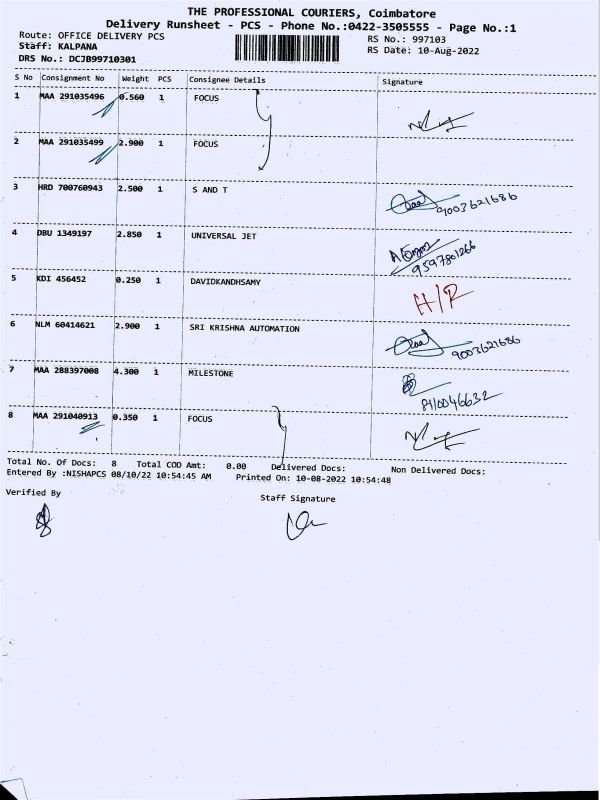 THE PROFESSIONAL COURIERS, Coimbatore
Delivery Runsheet - PCS - Phone No.:0422-3505555 - Page No.:1
Route: OFFICE DELIVERY PCS RS No.: 997103
Staff: KALPANA RS Date: 10-Aug-2022
DRS No.: DCJB99710301
S No Consignment No Weight PCS Consignee Details Signature
1 MAA 291035496 0.560 1 FOCUS
2 MAA 291035499 2.900 1 FOCUS
3 HRD 700760943 2.500 1 S AND T
9003621686
4 DBU 1349197 2.850 1 UNIVERSAL JET
9597801266
5 KDI 456452 0.250 1 DAVIDKANDHSAMY
H/R
6 NLM 60414621 2.900 1 SRI KRISHNA AUTOMATION
9003621686
7 MAA 288397008 4.300 1 MILESTONE
8110046632
8 MAA 291040913 0.350 1 FOCUS
Total No. Of Docs: 8 Total COD Amt: 0.00 Delivered Docs: Non Delivered Docs:
Entered By :NISHAPCS 08/10/22 10:54:45 AM Printed On: 10-08-2022 10:54:48
Verified By Staff Signature